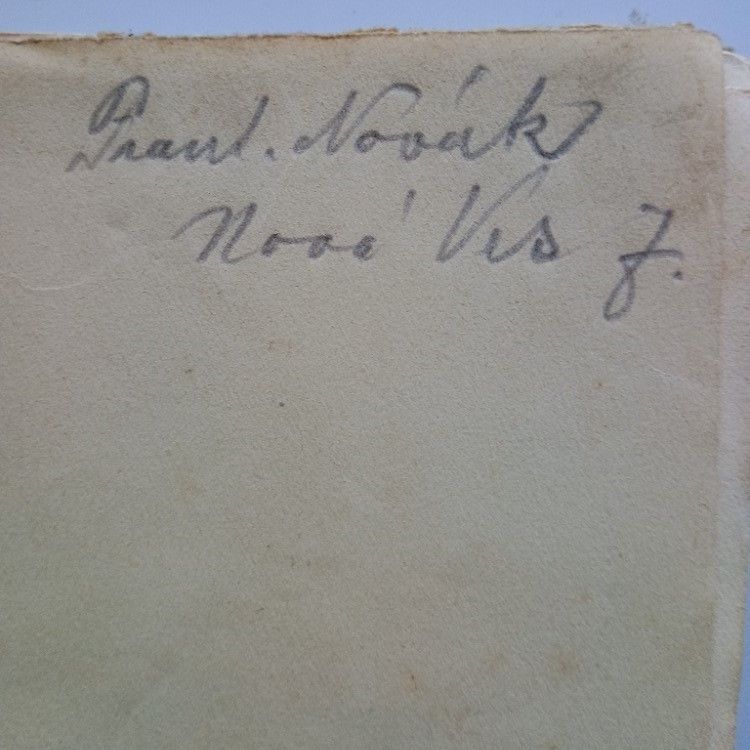 Frant. Novák
Nová Ves 7.